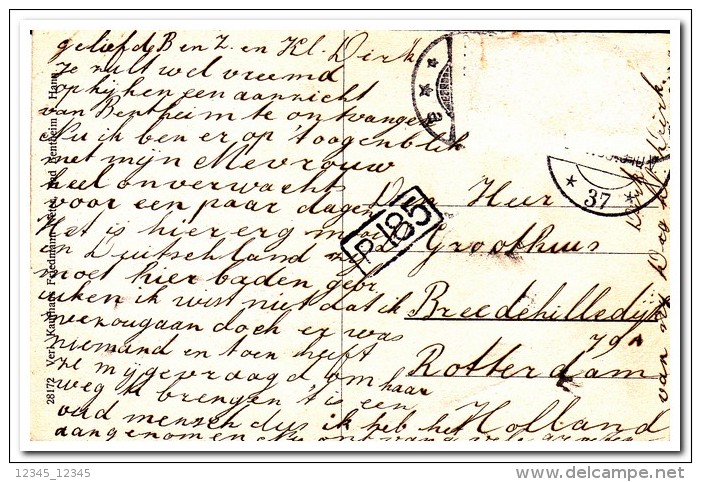 geliefde B en Z. en Kl. Dirk
Je zult wel vreemd
opkijken een aanzicht
van Bentheim te ontvangen
Nu ik ben er op 't oogenblik
met mijn Mevrouw
heel onverwachts
voor een paar dagen
Het is hier erg mooi
in Duitschland zij
moet hier baden gebr
uiken ik wist niet dat ik
mee zou gaan doch er was
niemand en toen heeft
ze mij gevraagd om haar
weg te brengen 't is een
oud mensch dus ik heb het
aangenomen Nu ontvang vele groeten
Den Heer
Groothuis
Breedehilledijk
79a
Rotterdam
Holland
van
Dirk
28172 Verl. Kaufhaus Friedmann Bad Bentheim i. Hann.
P185
37
12345_12345
delcampe.net